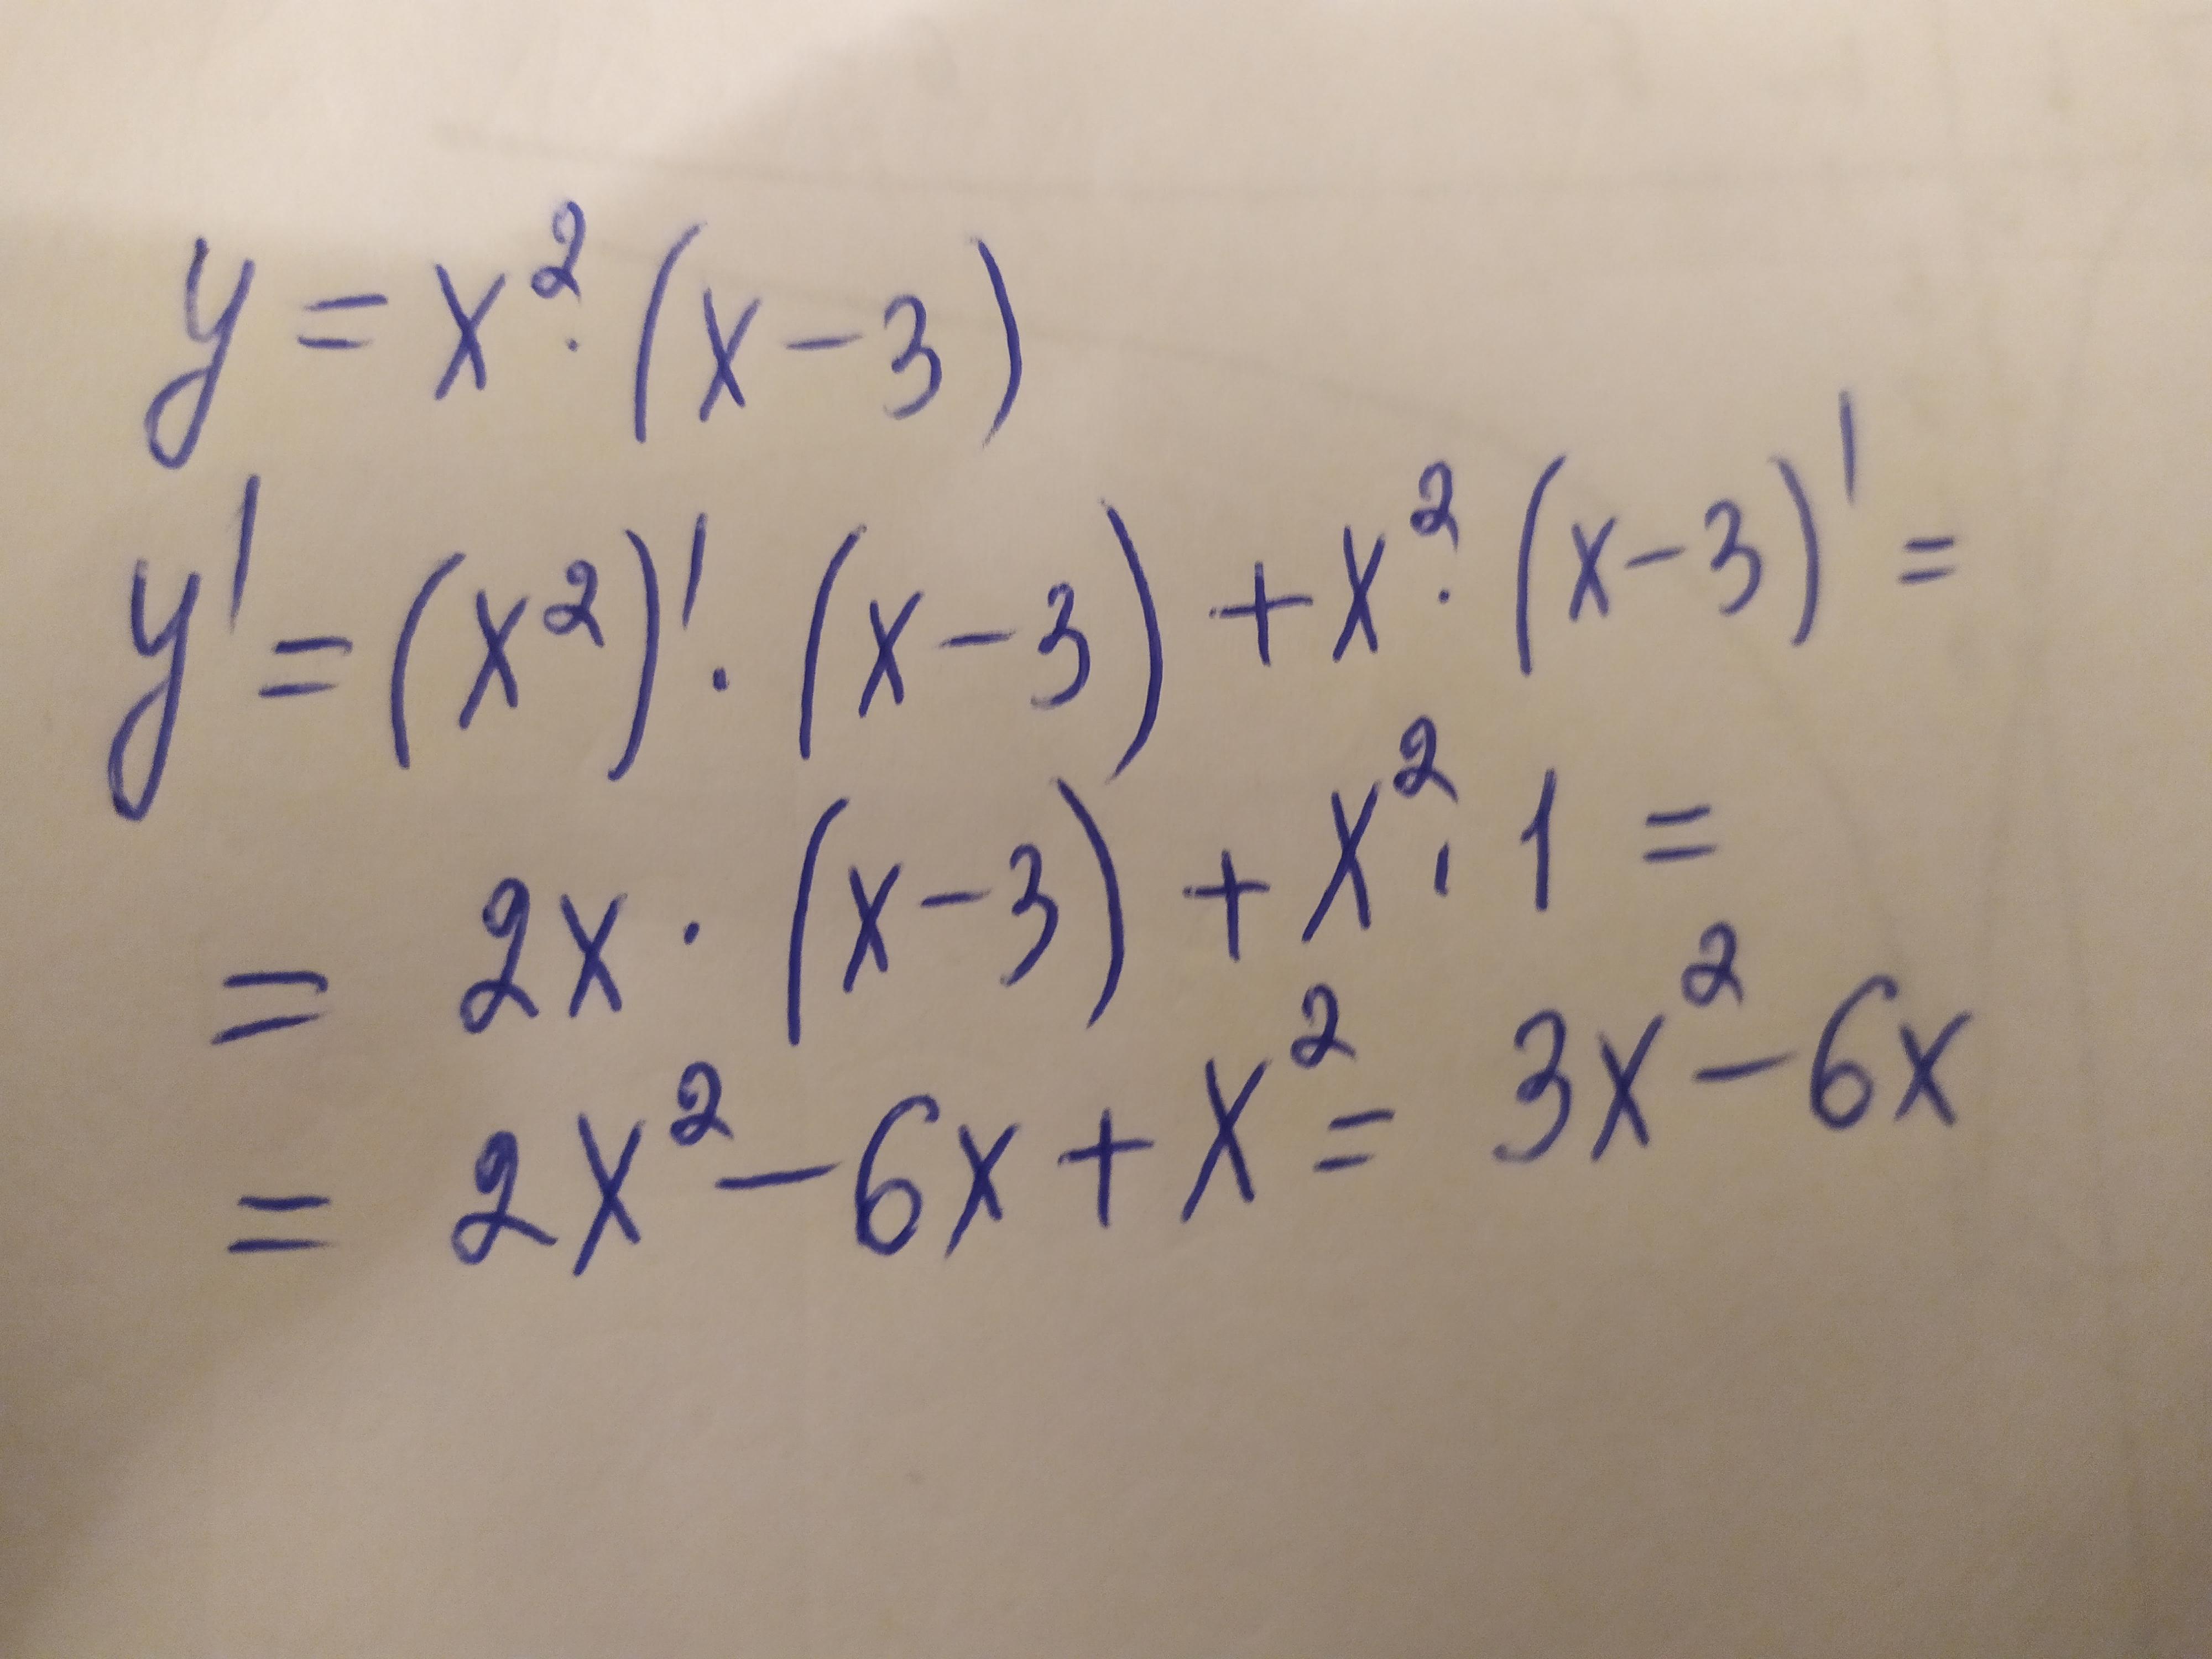 y = x² · (x - 3)
y' = (x²)' · (x - 3) + x² · (x - 3)' =
= 2x · (x - 3) + x² · 1 =
= 2x² - 6x + x² = 3x² - 6x